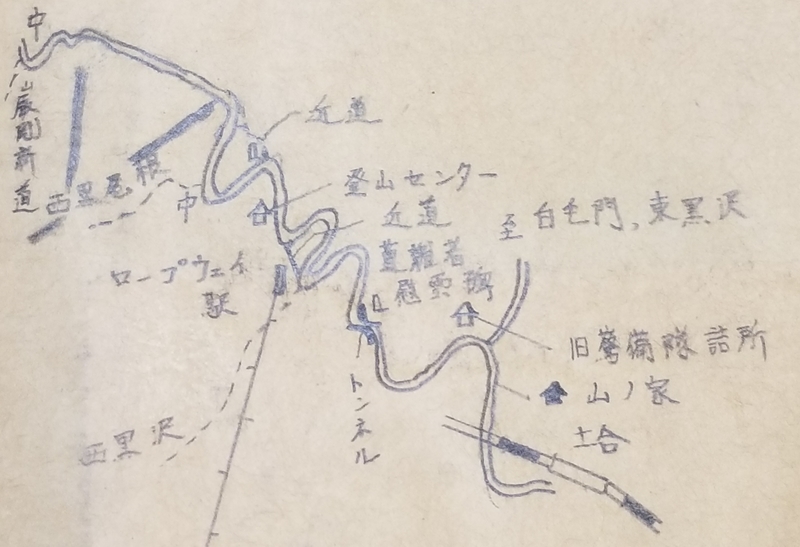 中
厳剛新道
西黒尾根
中
近道
登山センター
近道
ロープウェイ
駅
遭難者
慰霊碑
至 白毛門、東黒沢
旧警備隊詰所
山ノ家
土合
トンネル
西黒沢